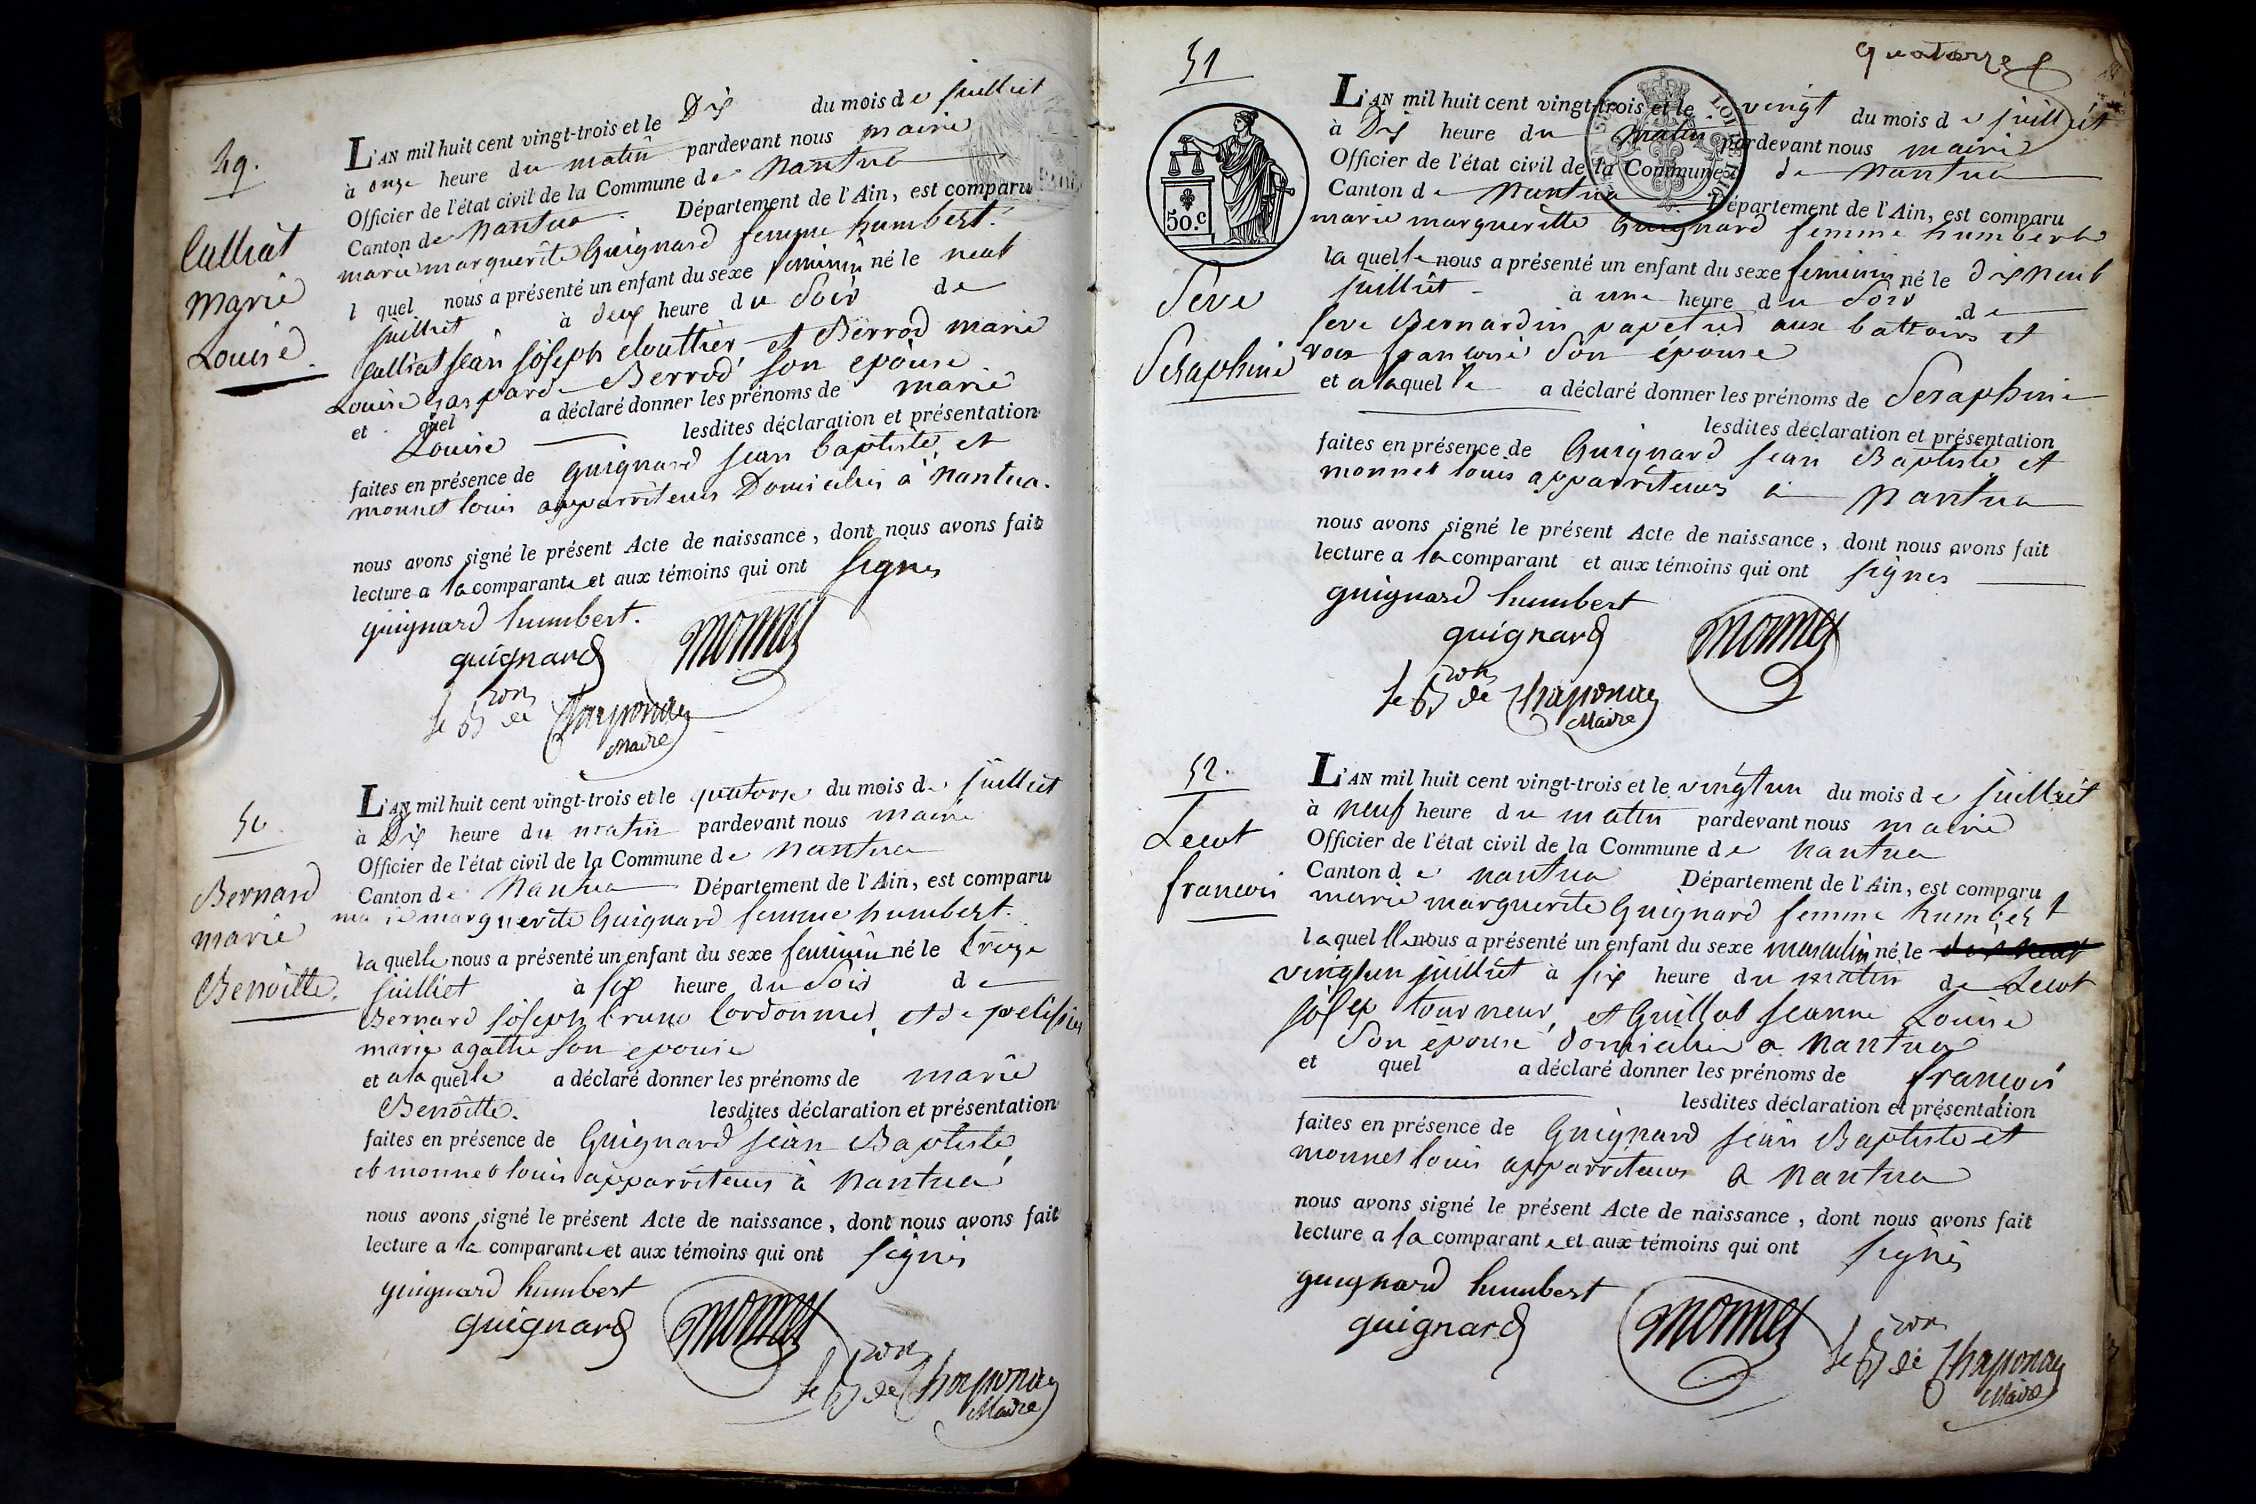 49.
Calliat
Marie
Louise.
L'AN mil huit cent vingt-trois et le Dix du mois de juilliet
à onze heure du matin pardevant nous maire
Officier de l'état civil de la Commune de Nantua
Canton de Nantua. Département de l'Ain, est comparu
marie marguerite Guignard femme humbert.
l quel nous a présenté un enfant du sexe feminin né le neuf
juilliet à deux heure du Soir de
Calliat jean joseph cloutier et Berrod marie
Louise gasparde Berrod son epouse
et quel a déclaré donner les prénoms de marie
Louise lesdites déclaration et présentation
faites en présence de guignard jean baptiste et
monnet louis apparriteurs Domicilies à Nantua.
nous avons signé le présent Acte de naissance, dont nous avons fait
lecture a la comparante et aux témoins qui ont signes
guignard humbert.
guignard monnet
le Bon de Chaponay
Maire
50
Bernard
marie
Benoitte.
L'AN mil huit cent vingt-trois et le quatorse du mois de juilliet
à Dix heure du matin pardevant nous maire
Officier de l'état civil de la Commune de Nantua
Canton de Nantua Département de l'Ain, est comparu
marie marguerite Guignard femme humbert.
la quelle nous a présenté un enfant du sexe feminin né le treize
juilliet à six heure du Soir de
Bernard joseph bruno Cordonnier et de pelissier
marie agathe son epouse
et a la quelle a déclaré donner les prénoms de marie
Benoitte. lesdites déclaration et présentation
faites en présence de Guignard jean Baptiste
et monnet louis apparriteurs à Nantua
nous avons signé le présent Acte de naissance, dont nous avons fait
lecture a la comparante et aux témoins qui ont signés
guignard humbert
guignard monnet
le Bon de Chaponay
Maire
quatorze
51
50.c
Seve
Seraphine
L'AN mil huit cent vingt-trois et le vingt du mois de juilliet
à Dix heure du matin pardevant nous maire
Officier de l'état civil de la Commune de Nantua
Canton de Nantua Département de l'Ain, est comparu
marie margueritte Guignard femme humbert
la quelle nous a présenté un enfant du sexe feminin né le dix neuf
juilliet à une heure du Soir de
Seve Bernardin papetier aux battoirs et
francoise Son épouse
et a laquelle a déclaré donner les prénoms de Seraphine
lesdites déclaration et présentation
faites en présence de Guignard jean Baptiste et
monnet louis apparriteurs à Nantua
nous avons signé le présent Acte de naissance, dont nous avons fait
lecture a la comparant et aux témoins qui ont signes
guignard humbert
guignard monnet
le Bon de Chaponay
Maire
52.
Lecot
francois
L'AN mil huit cent vingt-trois et le vingt un du mois de juilliet
à neuf heure du matin pardevant nous maire
Officier de l'état civil de la Commune de Nantua
Canton de nantua Département de l'Ain, est comparu
marie marguerite Guignard femme humbert
la quelle nous a présenté un enfant du sexe masculin né le dix neuf
vingt un juilliet à six heure du matin de Lecot
josep tourneur et Guillot jeanne Louise
Son épouse domicilies a Nantua
et quel a déclaré donner les prénoms de françois
lesdites déclaration et présentation
faites en présence de Guignard jean Baptiste et
monnet louis apparriteurs a Nantua
nous avons signé le présent Acte de naissance, dont nous avons fait
lecture a la comparante et aux témoins qui ont signés
guignard humbert
guignard monnet
le Bon de Chaponay
Maire